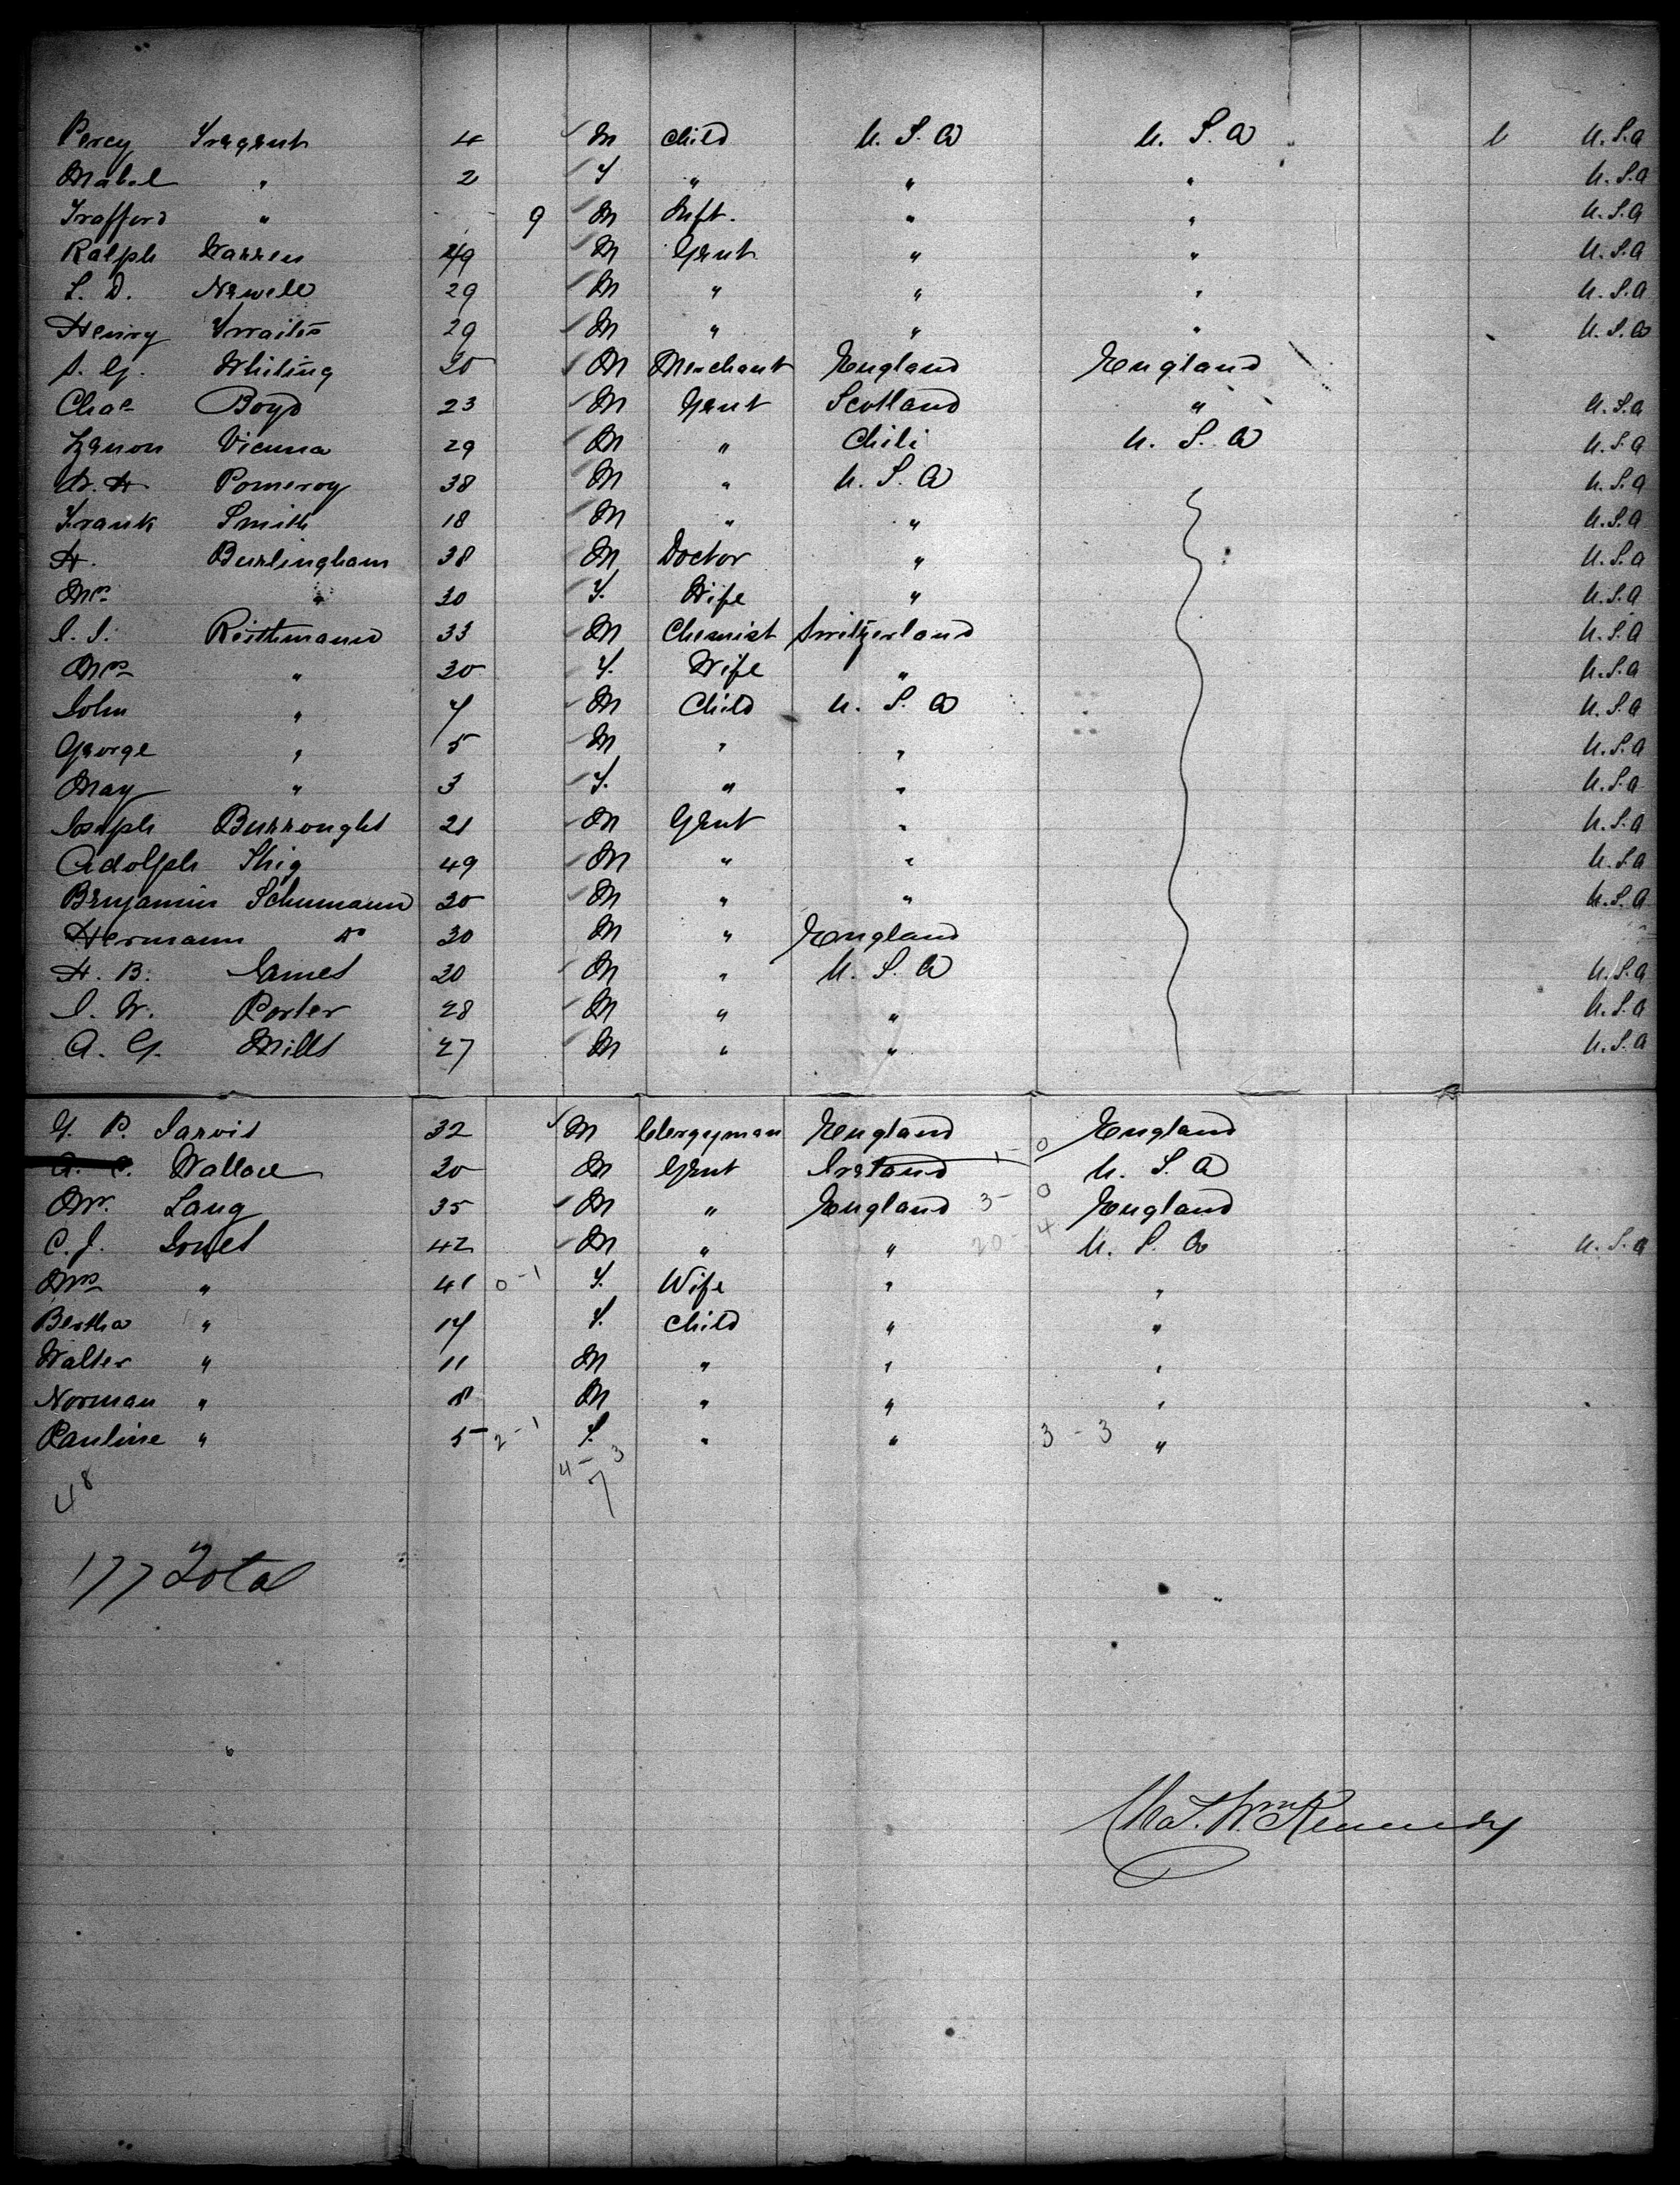 Percy 4 M child U.S.A U.S.A U.S.A
Mabel " 2 F " " " U.S.A
Trafford " 9 M Inft. " " U.S.A
Ralph Warren 49 M Gent " " U.S.A
S. D. Newell 29 M " " " U.S.A
Henry 29 M " " " U.S.A
S. G. Whiting Merchant England England
Chas Boyd 23 M Gent Scotland " U.S.A
Zenon Vicuna 29 M " Chili U.S.A U.S.A
Pomeroy 38 M " U.S.A U.S.A
Frank Smith 18 M " " U.S.A
H. Burlingham 38 M Doctor " U.S.A
Mrs " 30 F. Wife " U.S.A
J. J. Reithmann 33 M Chemist Switzerland U.S.A
Mrs " F. Wife " U.S.A
John " 7 M Child U.S.A U.S.A
George " 5 M " " U.S.A
May " 3 F. " " U.S.A
Joseph Burroughs 21 M Gent " U.S.A
Adolph 49 M " " U.S.A
Benjamin Schumann M " " U.S.A
Hermann Do 30 M " England
H. B. James 30 M " U.S.A U.S.A
J. W. Porter 28 M " " U.S.A
A. G. Mills 27 M " " U.S.A
G. P. Jarvis 32 M Clergyman England England
Wallace M Gent Ireland 1-0 U.S.A
Mr. Lang 35 M " England 3-0 England
C. J. Jones 42 M " " 20-4 U.S.A U.S.A
Mrs " 41 0-1 F. Wife " "
Bertha " 14 F. child " "
Walter " 11 M " " "
Norman " 8 M " " "
Pauline " 5 2-1 F. " " 3-3 "
4-3
48 7
177 Total
Chas. Wm Kennedy